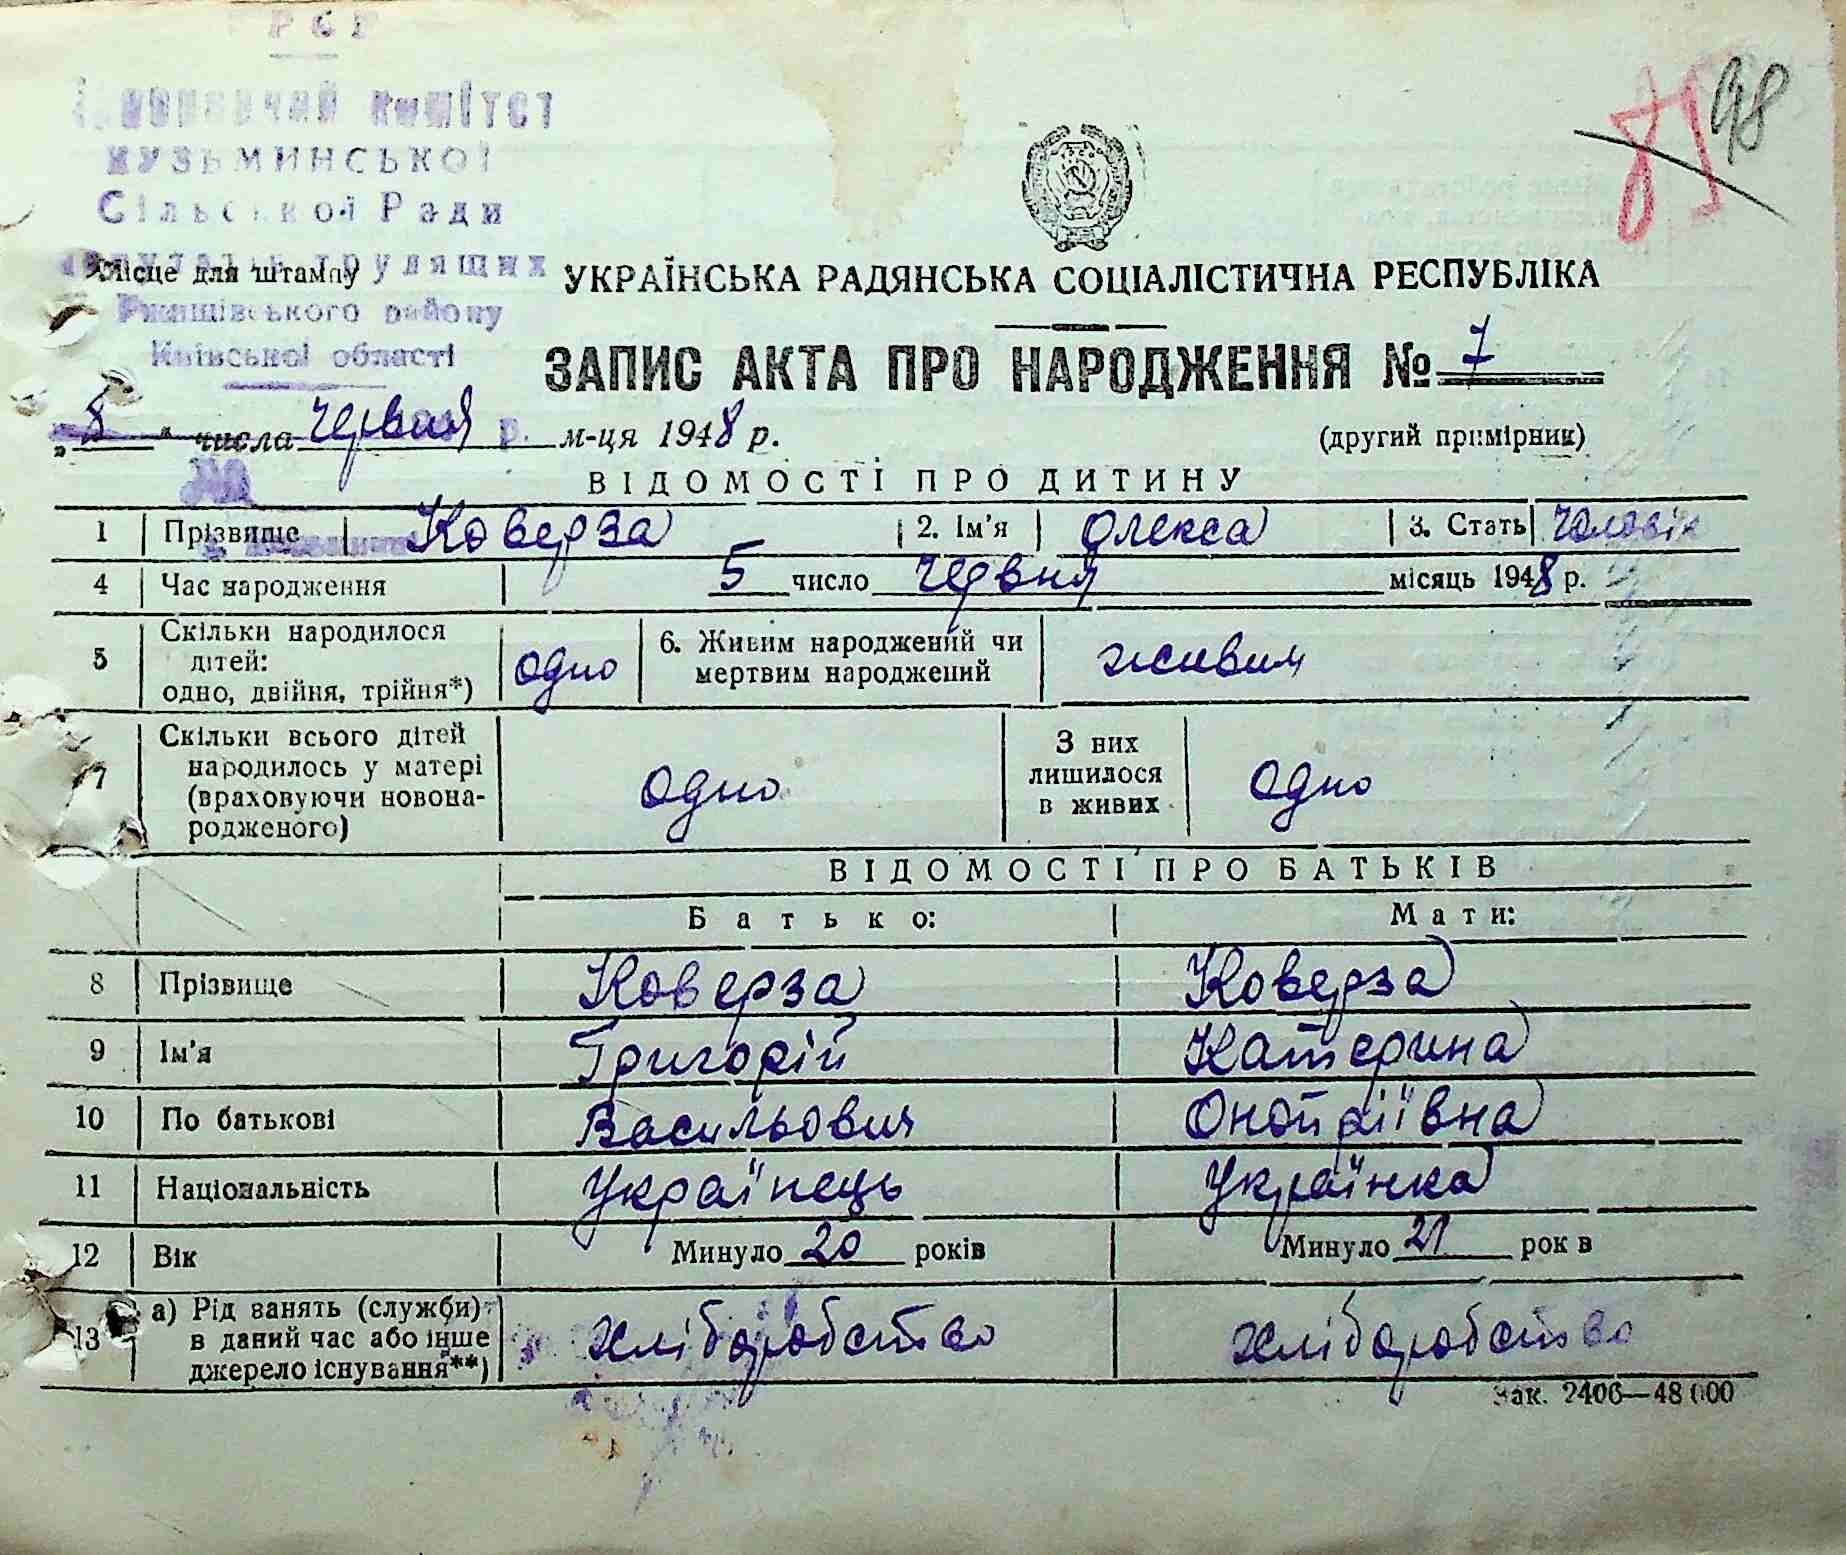 Р С Р
комітет
КУЗЬМИНСЬКОЇ
Сільської Ради
трудящих
Ржищівського району
Київської області
Місце для штампу
85 98
УКРАЇНСЬКА РАДЯНСЬКА СОЦІАЛІСТИЧНА РЕСПУБЛІКА
ЗАПИС АКТА ПРО НАРОДЖЕННЯ № 7
„8" числа червня м-ця 1948 р. (другий примірник)
ВІДОМОСТІ ПРО ДИТИНУ
1 Прізвище Коверза 2. Ім'я Олекса 3. Стать чоловік
4 Час народження 5 число червня місяць 1948 р.
5 Скільки народилося дітей: одно, двійня, трійня*) одно 6. Живим народжений чи мертвим народжений живим
7 Скільки всього дітей народилось у матері (враховуючи новонародженого) одно З них лишилося в живих одно
ВІДОМОСТІ ПРО БАТЬКІВ
Батько: Мати:
8 Прізвище Коверза Коверза
9 Ім'я Григорій Катерина
10 По батькові Васильович Онопріївна
11 Національність Українець Українка
12 Вік Минуло 20 років Минуло 21 рок в
13 а) Рід занять (служби) в даний час або інше джерело існування**) хліборобство хліборобство
Зак. 2406—48 000